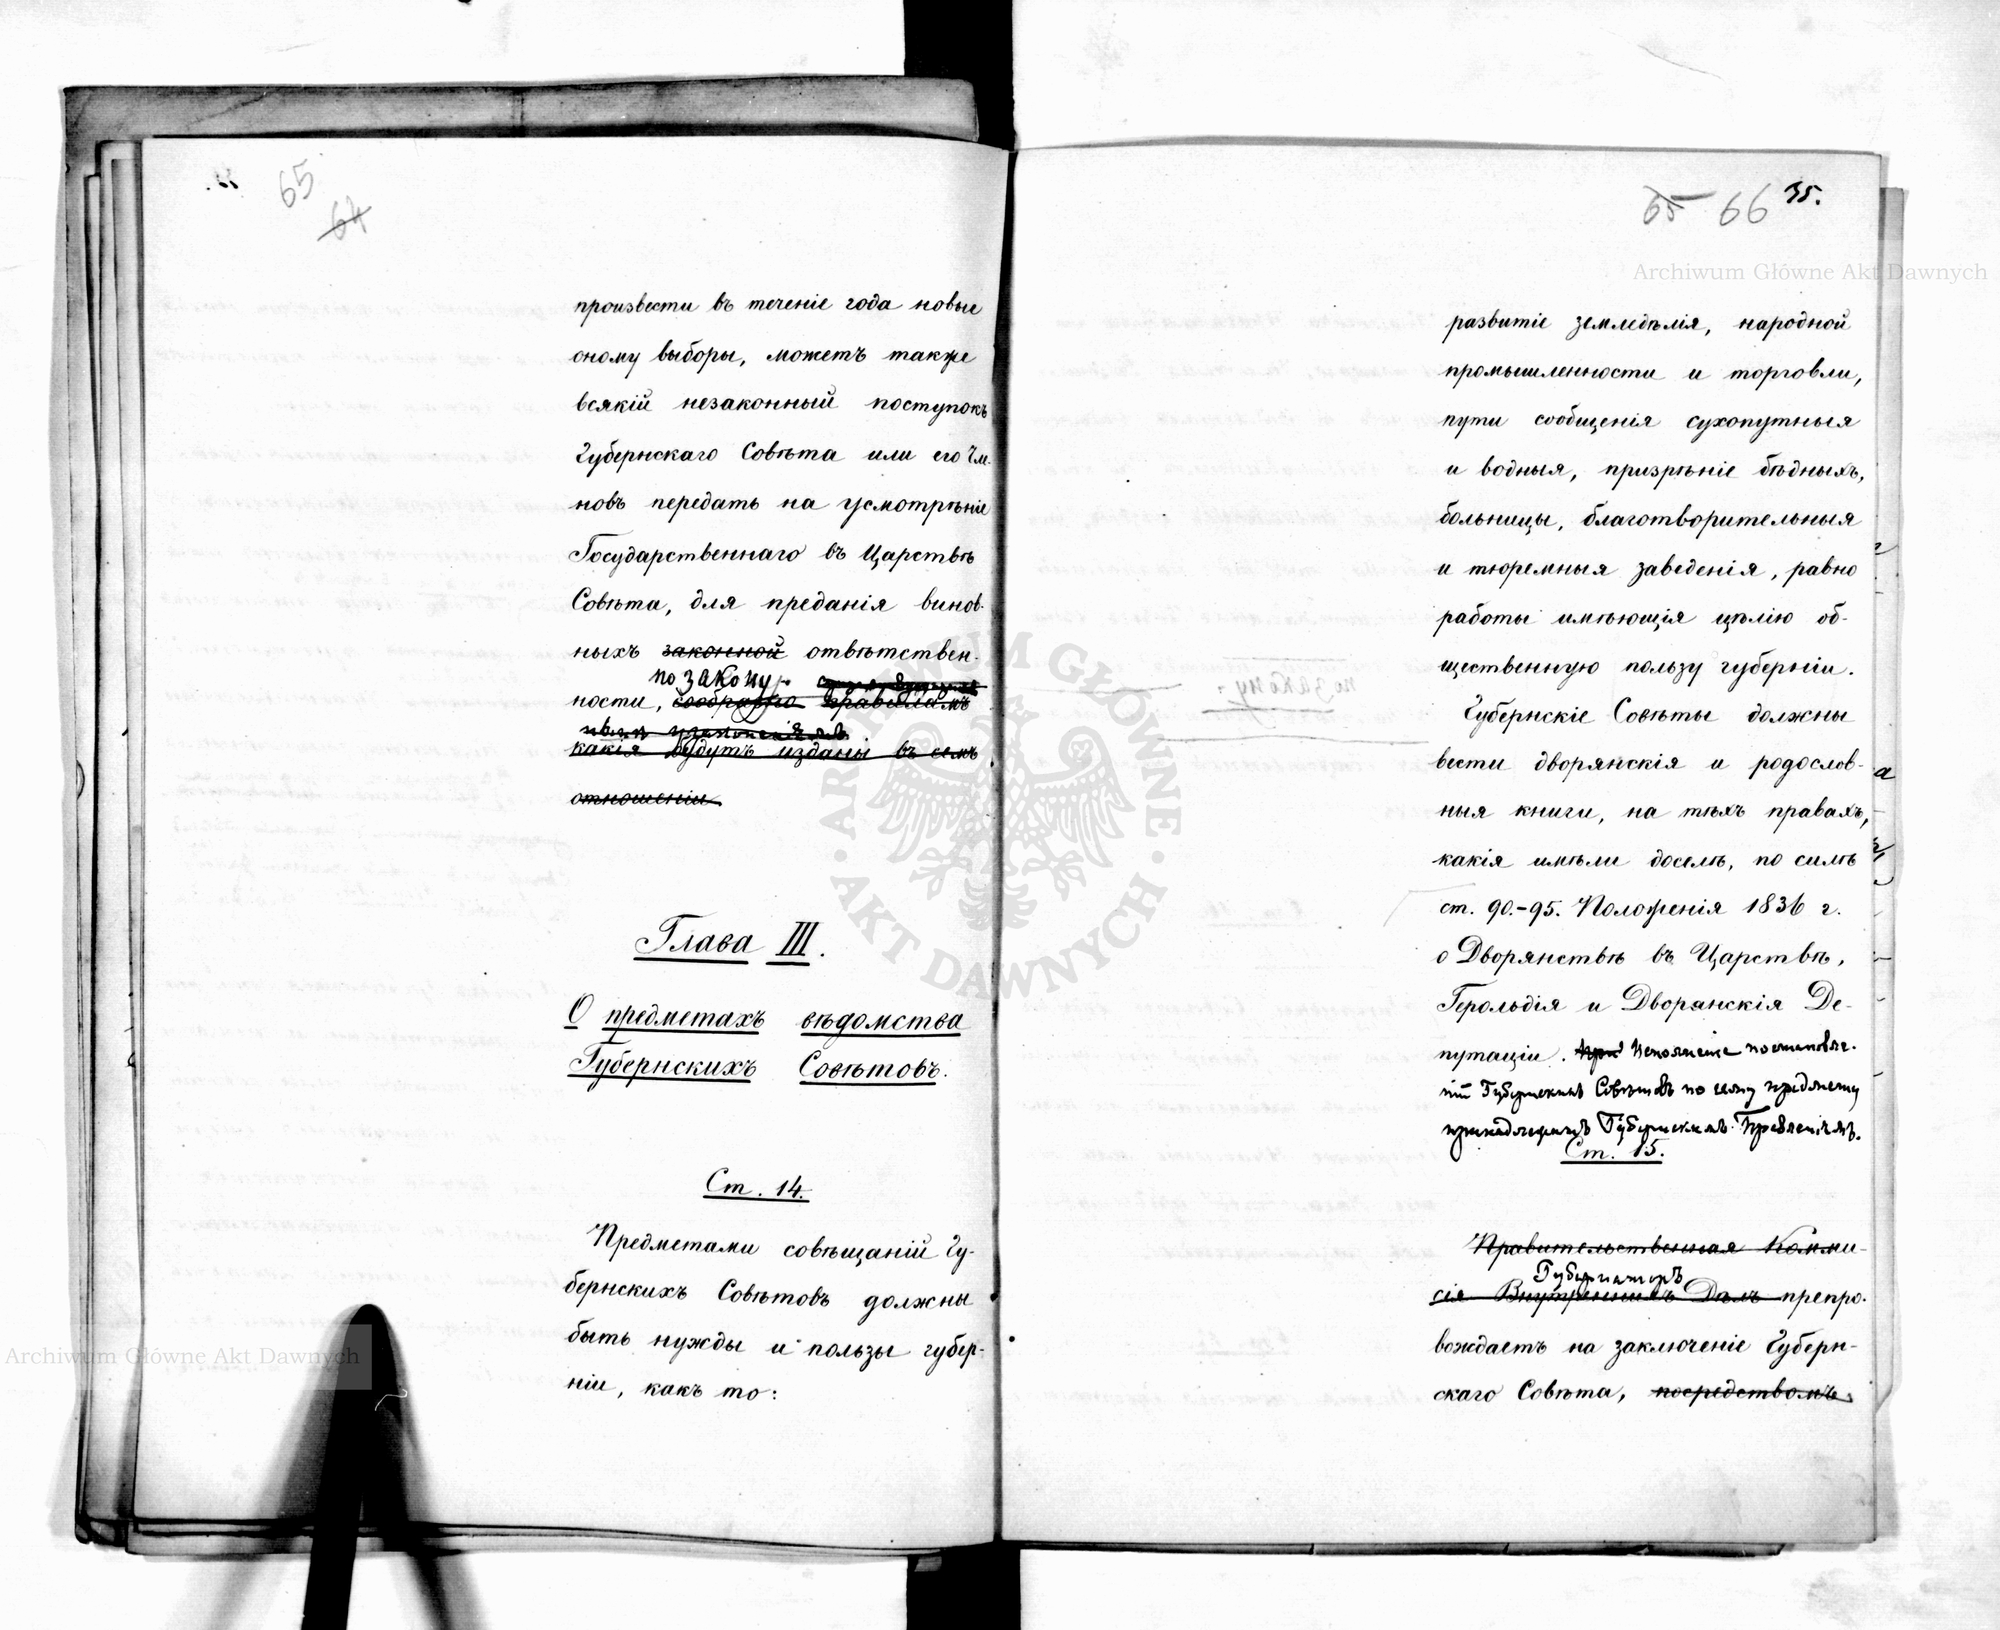 65
64
произвести въ теченіе года новые
оному выборы, можетъ также
всякій незаконный поступокъ
Губернскаго Совѣта или его Чле-
новъ передать на усмотрѣніе
Государственнаго въ Царствѣ
Совѣта, для преданія винов-
ныхъ законной отвѣтствен-
по закону.
ности, сообразно правиламъ
какія будутъ изданы въ семъ
отношеніи.
Глава III.
О предметахъ вѣдомства
Губернскихъ Совѣтовъ.
Ст. 14.
Предметами совѣщаній Гу-
бернскихъ Совѣтовъ должны
быть нужды и пользы губер-
ніи, какъ то:
65 66 35.
развитіе земледѣлія, народной
промышленности и торговли,
пути сообщенія сухопутныя
и водныя, призрѣніе бѣдныхъ,
больницы, благотворительныя
и тюремныя заведенія, равно
работы имѣющія цѣлію об-
щественную пользу губерніи.
Губернскіе Совѣты должны
вести дворянскія и родослов-
ныя книги, на тѣхъ правахъ,
какія имѣли доселѣ, по силѣ
ст. 90.-95. Положенія 1836 г.
о Дворянствѣ въ Царствѣ,
Герольдія и Дворянскія Де-
путаціи. При Исполненіе постановле-
ній Губернскихъ Совѣтовъ по сему предмету
принадлежитъ Губернскимъ Правленіямъ.
Ст. 15.
Правительственная Комми-
Губернаторъ
сія Внутреннихъ Дѣлъ препро-
вождаетъ на заключеніе Губерн-
скаго Совѣта, посредствомъ
Archiwum Główne Akt Dawnych
Archiwum Główne Akt Dawnych
ARCHIWUM GŁÓWNE AKT DAWNYCH